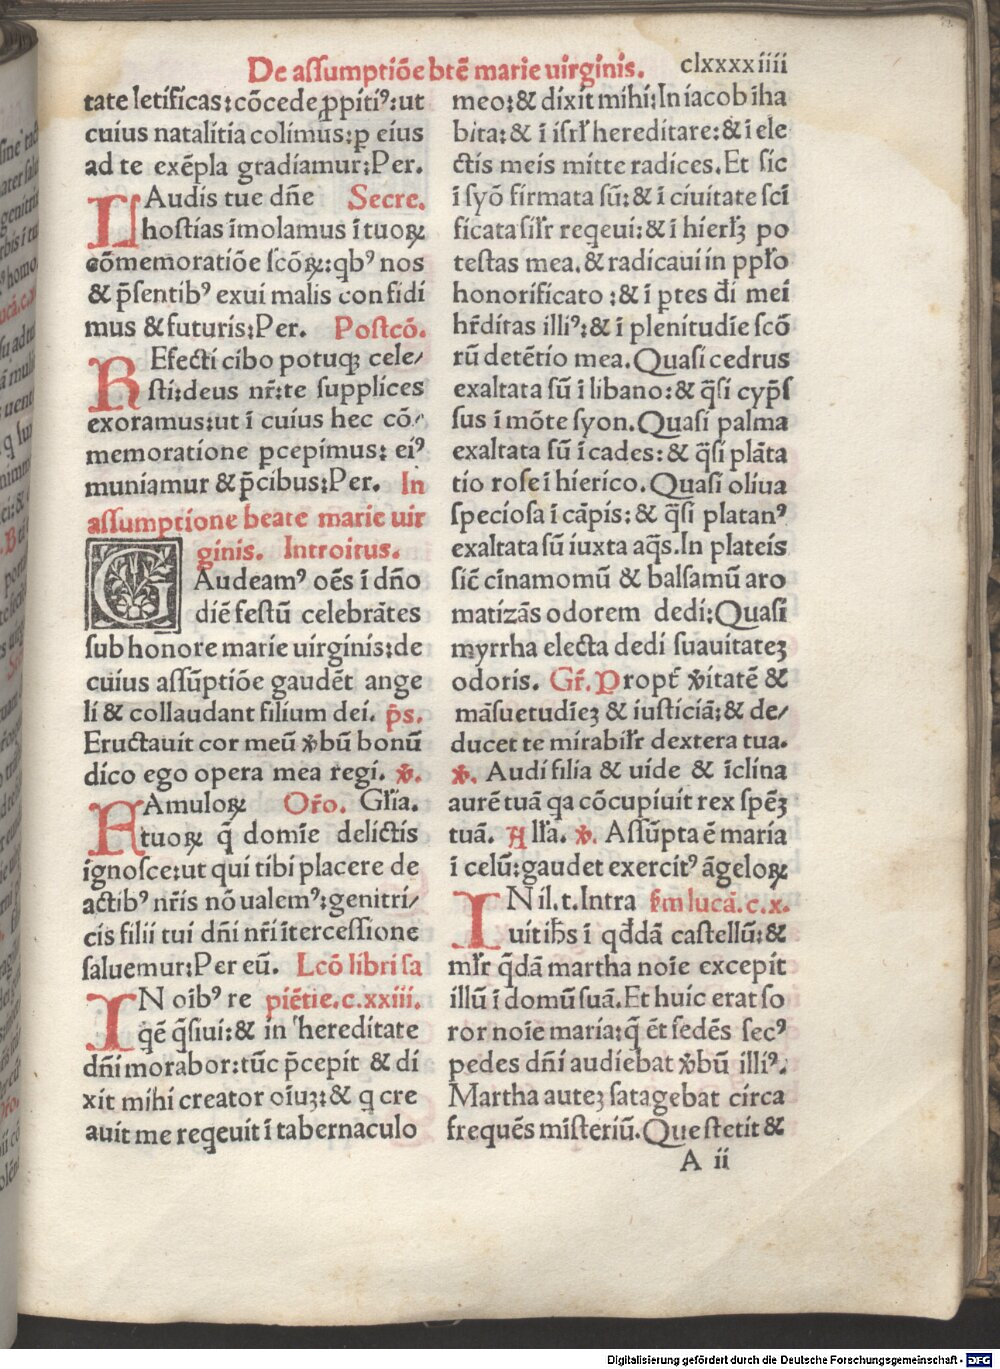 De assumptiōe btē marie uirginis. clxxxxiiii
tate letificas:cōcede ꝓpitiꝰ:ut
cuius natalitia colimus:ꝑ eius
ad te exēpla gradiamur:Per.
LAudis tue dñe Secre.
hostias īmolamus ī tuoꝝ
cōmemoratiōe scōꝝ:qbꝰ nos
& p̄sentibꝰ exui malis confidi
mus & futuris:Per. Postcō.
REfecti cibo potuqꝫ cele/
sti:deus nr̄:te supplices
exoramus:ut ī cuius hec cō/
memoratione pcepimus: eiꝰ
muniamur & p̄cibus:Per. In
assumptione beate marie uir
ginis. Introitus.
GAudeamꝰ oēs ī dño
diē festū celebrātes
sub honore marie uirginis:de
cuius assūptiōe gaudēt ange
li & collaudant filium dei. p̄s.
Eructauit cor meū v̄bū bonū
dico ego opera mea regi. v̄.
FAmuloꝝ Or̄o. Gl̄ia.
tuoꝝ q̄ domīe delictis
ignosce:ut qui tibi placere de
actibꝰ nr̄is nō ualemꝰ:genitri/
cis filii tui dñi nr̄i ītercessione
saluemur:Per eū. Lcō libri sa
IN oibꝰ re piētie.c.xxiii.
qē q̄siui:& in hereditate
dñi morabor:tūc p̄cepit & di
xit mihi creator oiuꝫ:& q cre
auit me reqeuit ī tabernaculo
meo:& dixit mihi:In iacob iha
bita:& ī isrl̄ hereditare:& ī ele
ctis meis mitte radices.Et sic
ī syō firmata sū:& ī ciuitate scī
ficata sil̄r reqeui:& ī hierlꝫ po
testas mea.& radicaui in ppl̄o
honorificato :& ī ptes d̄i mei
hr̄ditas illiꝰ:& ī plenitudīe scō
rū detētio mea.Quasi cedrus
exaltata sū ī libano:& q̄si cyp̄s
sus ī mōte syon.Quasi palma
exaltata sū ī cades:& q̄si plāta
tio rose ī hierico.Quasi oliua
speciosa ī cāpis:& q̄si platanꝰ
exaltata sū iuxta aq̄s.In plateis
sic̄ cīnamomū & balsamū aro
matizās odorem dedi:Quasi
myrrha electa dedi suauitateꝫ
odoris. Gr̄. Propt̄ v̄itatē &
māsuetudīeꝫ & iusticiā:& de/
ducet te mirabil̄r dextera tua.
v̄. Audi filia & uide & īclina
aurē tuā qa cōcupiuit rex spēꝫ
tuā. All̄a. v̄. Assūpta ē maria
ī celū:gaudet exercitꝰ āgeloꝝ
IN il.t.Intra s̄m lucā.c.x.
uit ih̄s ī qđdā castellū:&
ml̄r q̄dā martha noīe excepit
illū ī domū suā.Et huic erat so
ror noīe maria:q̄ ēt sedēs secꝰ
pedes dñi audiebat v̄bū illiꝰ.
Martha auteꝫ satagebat circa
frequēs mīsteriū.Que stetit &
A ii
Digitalisierung gefördert durch die Deutsche Forschungsgemeinschaft - DFG